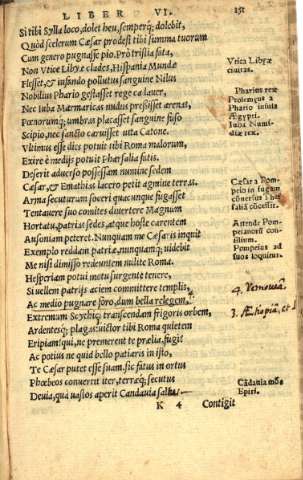 LIBER VI. 151
Si tibi Sylla loco, dolet heu, semperq; dolebit,
Quòd scelerum Cæsar prodest tibi summa tuorum
Cum genero pugnasse pio. Prò tristia fata,
Non Vticæ Libyæ clades, Hispania Mundæ
Flesset, & infando pollutus sanguine Nilus
Nobilius Phario gestasset rege cadauer,
Nec Iuba Marmaricas nudus pressisset arenas,
Pœnorumq; umbras placasset sanguine fuso
Scipio, nec sancto caruisset uita Catone.
Vltimus esse dies potuit tibi Roma malorum,
Exire è medijs potuit Pharsalia fatis.
Deserit aduerso possessam numine sedem
Cæsar, & Emathias lacero petit agmine terras.
Arma secuturum soceri quacunque fugasset
Tentauere sui comites diuertere Magnum
Hortatu, patrias sedes, atque hoste carentem
Ausoniam peteret. Nunquam me Cæsaris inquit
Exemplo reddam patriæ, nunquamq; uidebit
Me nisi dimisso redeuntem milite Roma.
Hesperiam potui motu surgente tenere,
Si uellem patrijs aciem committere templis,
Ac medio pugnare foro, dum bella relegem,
Extremum Scythici transcendam frigoris orbem,
Ardentesq; plagas. uictor tibi Roma quietem
Eripiam? qui, ne premerent te prælia, fugi?
Ac potius ne quid bello patiaris in isto,
Te Cæsar putet esse suam. sic fatus in ortus
Phœbeos conuertit iter, terræq; secutus
Deuia, quà uastos aperit Candauia saltus
K 4 Contigit
Vtica Libyæ
ciuitas.
Pharius rex
Ptolemæus à
Phario insula
Ægypti.
Iuba Numi-
diæ rex.
Cæsar à Pom-
peio in fugam
conuersus in Thes-
saliã cõcessit.
Attende Pom-
peianorũ con-
silium.
Pompeius ad
suos loquitur.
4. Venousa.
3. Æthopia,
Cãdauia mõs
Epiri.